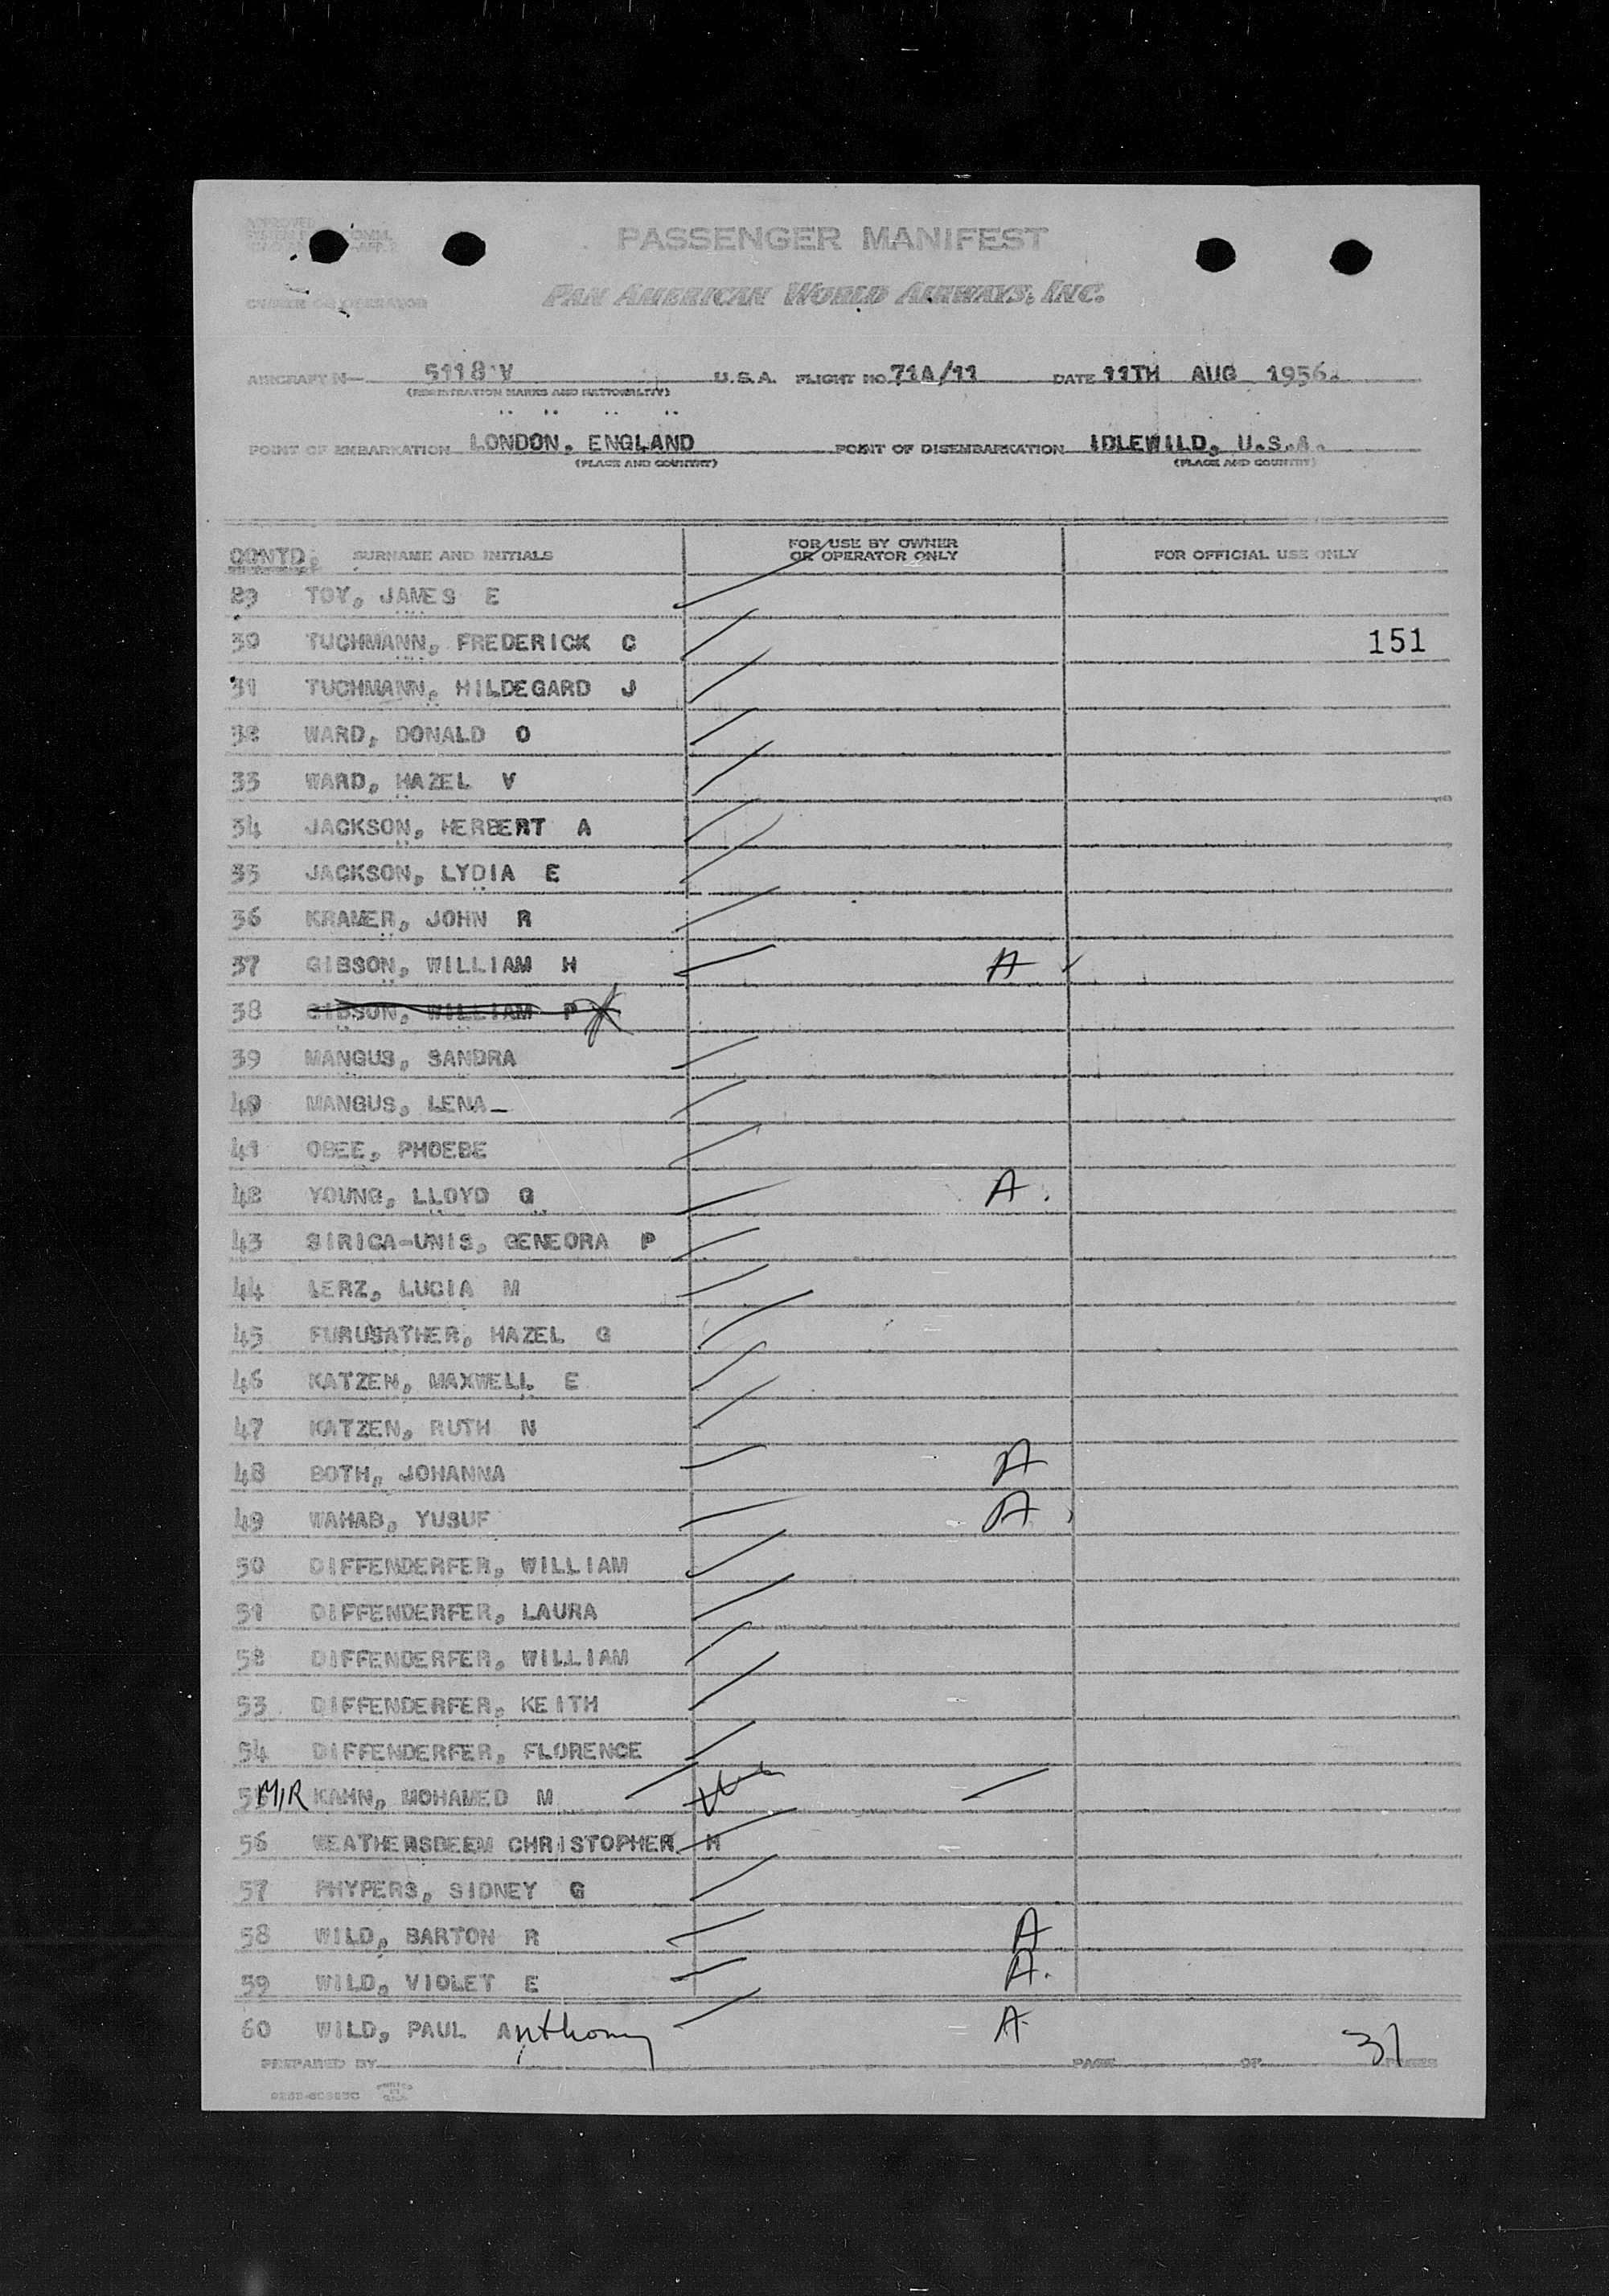 APPROVED
PASSENGER MANIFEST
OWNER OR OPERATOR PAN AMERICAN WORLD AIRWAYS, INC.
AIRCRAFT N— 5118 V U.S.A. FLIGHT NO. 71A/11 DATE 11TH AUG 1956.
(REGISTRATION MARKS AND NATIONALITY)
POINT OF EMBARKATION LONDON, ENGLAND POINT OF DISEMBARKATION IDLEWILD, U.S.A.
(PLACE AND COUNTRY) (PLACE AND COUNTRY)
CONTD. SURNAME AND INITIALS FOR USE BY OWNER OR OPERATOR ONLY FOR OFFICIAL USE ONLY
29 TOY, JAMES E
30 TUCHMANN, FREDERICK C 151
31 TUCHMANN, HILDEGARD J
32 WARD, DONALD O
33 WARD, HAZEL V
34 JACKSON, HERBERT A
35 JACKSON, LYDIA E
36 KRAMER, JOHN R
37 GIBSON, WILLIAM H A
38 GIBSON, WILLIAM P
39 MANGUS, SANDRA
40 MANGUS, LENA
41 OBEE, PHOEBE
42 YOUNG, LLOYD G A.
43 SIRIGA-UNIS, GENEORA P
44 LERZ, LUCIA M
45 FURUSATHER, HAZEL G
46 KATZEN, MAXWELL E
47 KATZEN, RUTH N
48 BOTH, JOHANNA A
49 WAHAB, YUSUF A
50 DIFFENDERFER, WILLIAM
51 DIFFENDERFER, LAURA
52 DIFFENDERFER, WILLIAM
53 DIFFENDERFER, KEITH
54 DIFFENDERFER, FLORENCE
55 M/R KAHN, MOHAMED M
56 WEATHERSDEEM CHRISTOPHER M
57 PHYPERS, SIDNEY G
58 WILD, BARTON R A
59 WILD, VIOLET E A.
60 WILD, PAUL Anthony A
PREPARED BY PAGE OF 31 PAGES